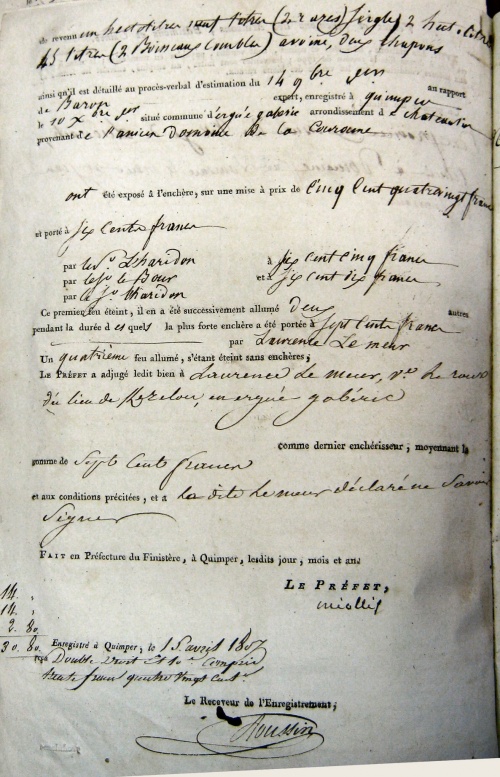 de revenu un hectolitre cent litres (2 razes) seigle, 2 hectolitres
45 litres (2 Boisseaux combles) avoine, deux chapons
ainsi qu'il est détaillé au procès-verbal d'estimation du 14 9bre dern au rapport
de Baron expert, enregistré à quimper
le 10 Xbre dern situé commune d'ergué gaberic arrondissement de chateaulin
provenant de l'ancien Domaine De la Couronne
ont été exposé à l'enchère, sur une mise à prix de Cinq Cent quatrevingt francs
et porté à Six Cents francs
par Lharidon à Six Cent Cinq francs
par le Bour et à Six Cent dix francs
par le Lharidon
Ce premier feu éteint, il en a été successivement allumé deux autres
pendant la durée desquels la plus forte enchère a été portée à Sept Cents francs
par Laurence Le meur
Un quatrième feu allumé, s'étant éteint sans enchères;
LE PRÉFET a adjugé ledit bien à Laurence Le meur, ve Le roux
du lieu de en ergué gabéric
comme dernier enchérisseur; moyennant la
somme de Sept Cents francs
et aux conditions précitées, et a la dite Le meur déclaré ne Savoir
Signer
FAIT en Préfecture du Finistère, à Quimper, lesdits jour, mois et an.
LE PRÉFET,
miollis
14.
14.
2. 80.
30. 80.
Enregistré à Quimper, le 15 avril 1807
reçu Double Droit Et 10e Compris
trente francs quatre vingt Cent.
Le Receveur de l'Enregistrement,
Roussin